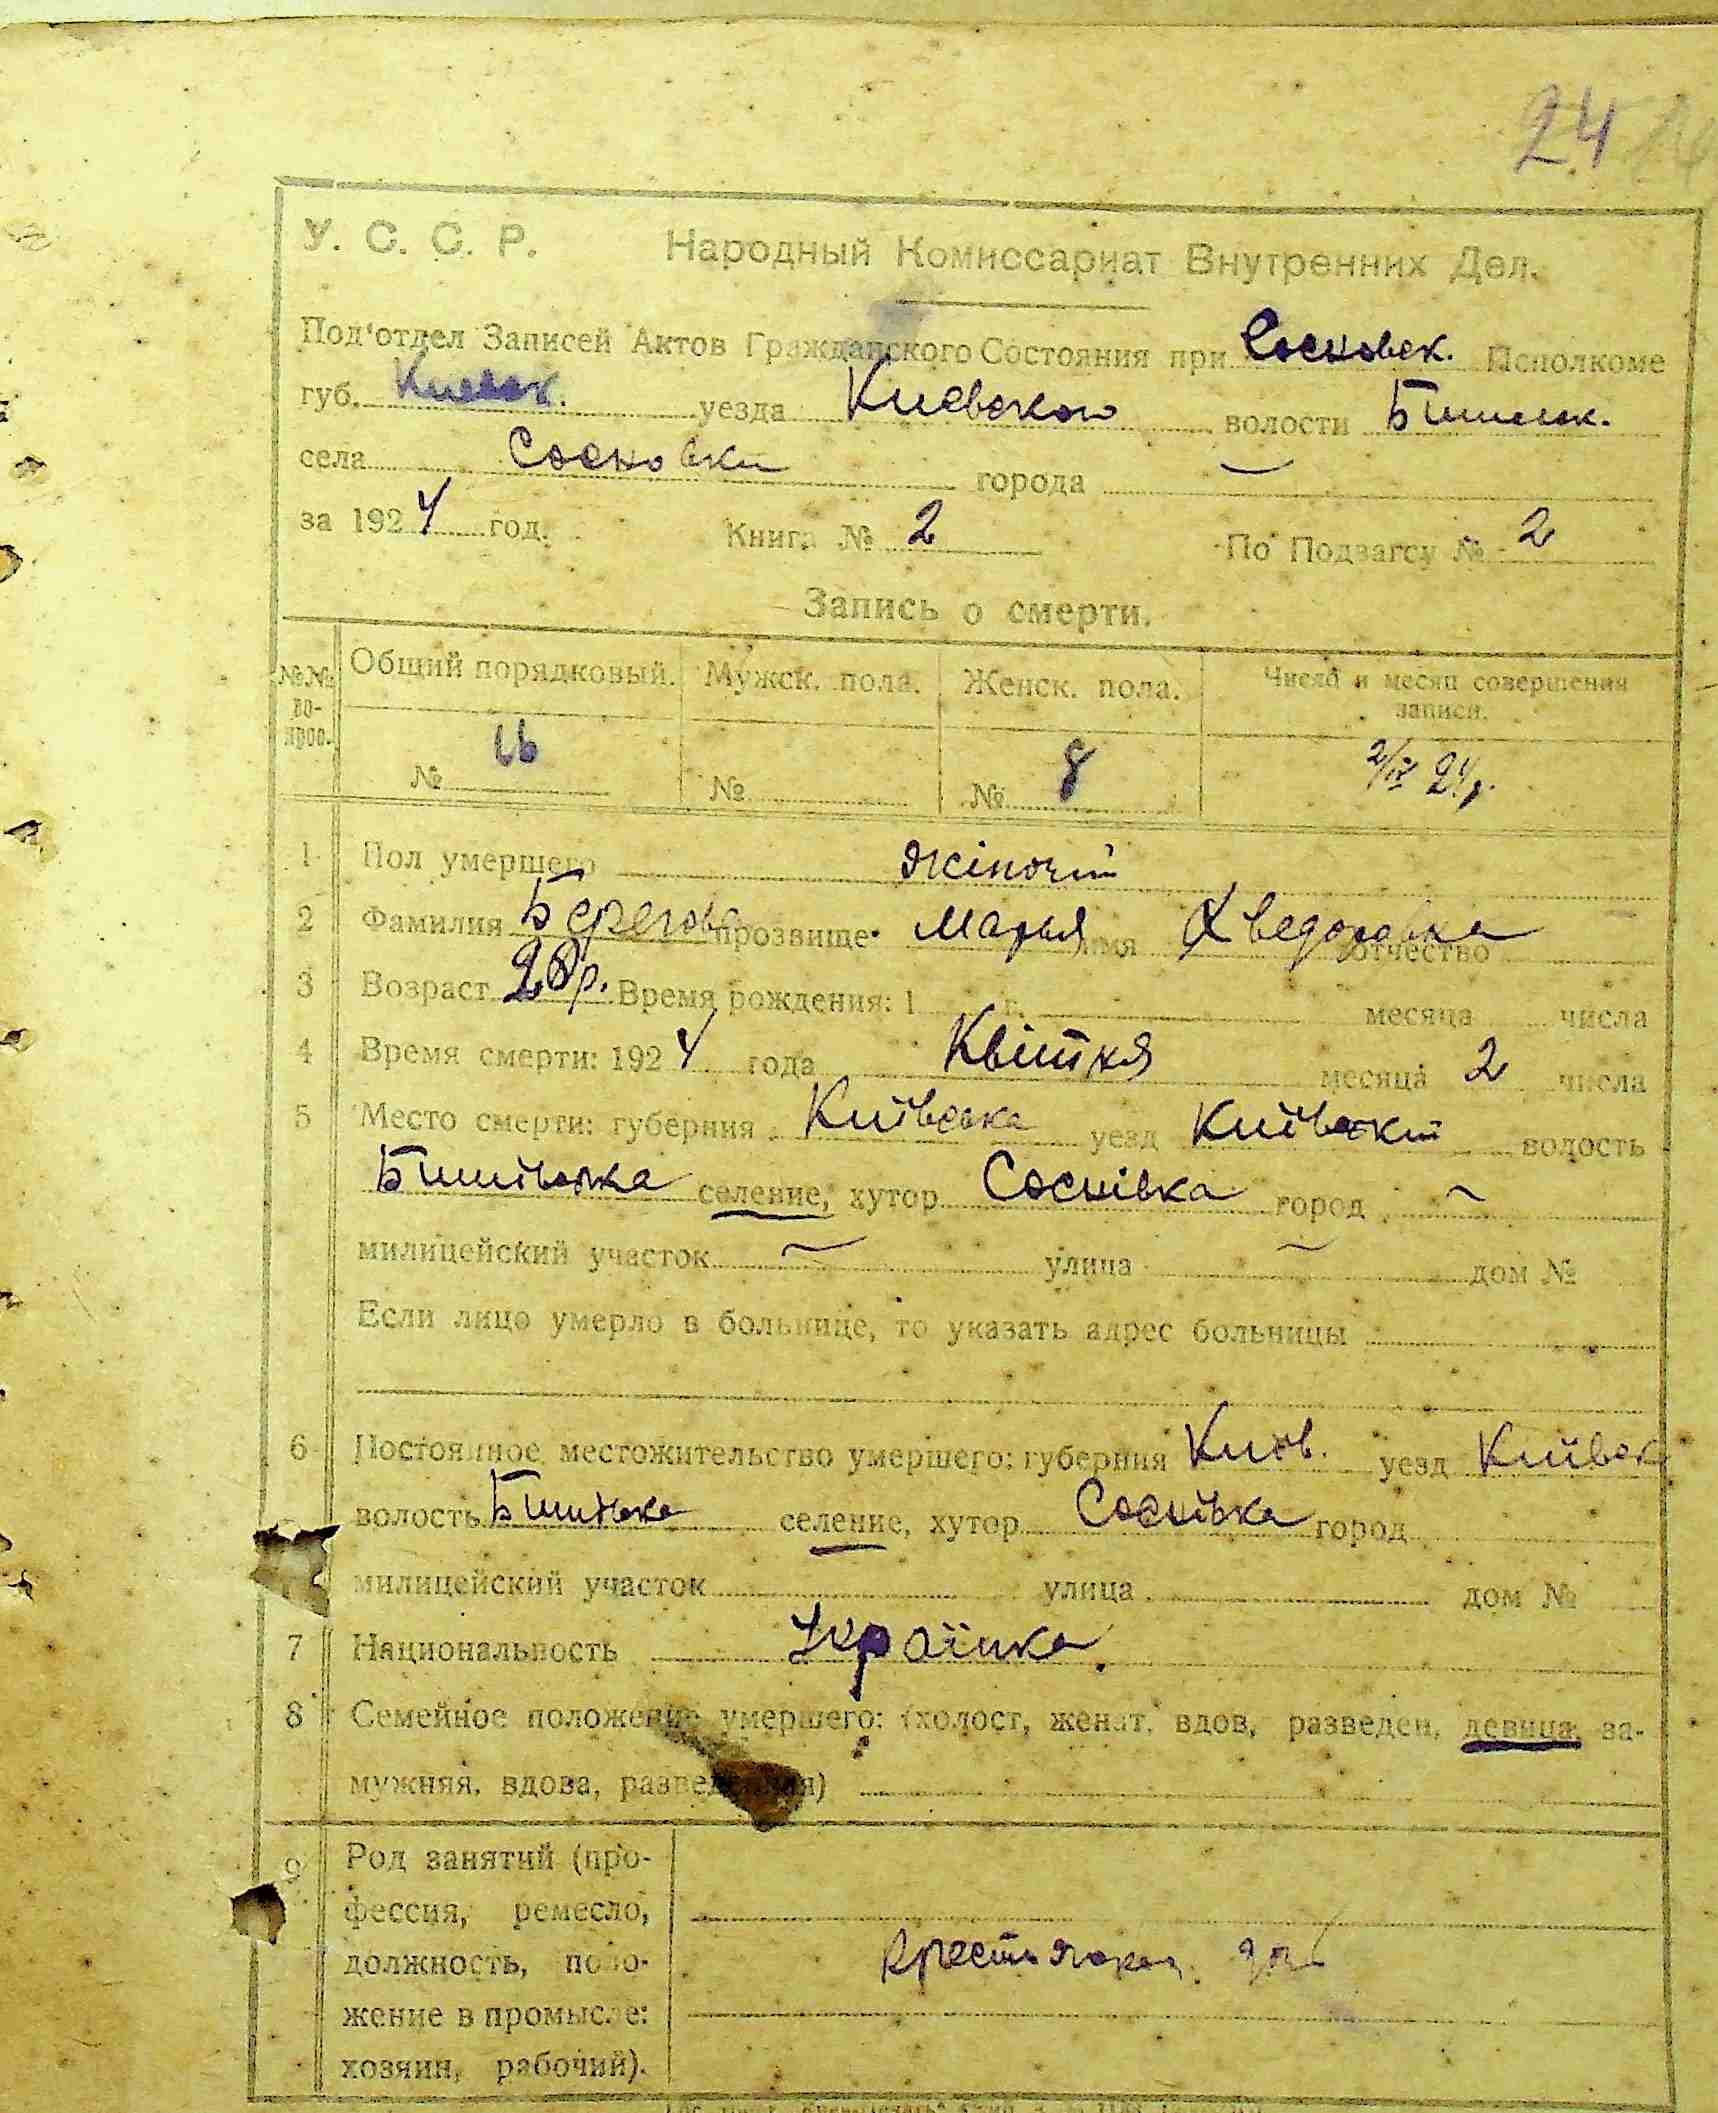 24
У. С. С. Р. Народный Комиссариат Внутренних Дел.
Под'отдел Записей Актов Гражданского Состояния при Сосновск. Исполкоме
губ. Киевск. уезда Киевского волости Бишевск.
села Сосновки города
за 1924 год. Книга № 2 По Подзагсу № 2
Запись о смерти.
№№ во- прос. Общий порядковый. Мужск. пола. Женск. пола. Число и месяц совершения записи.
№ 16 № № 8 2/IV 24р.
1 Пол умершего жіночий
2 Фамилия Берегова прозвище Марья имя Хведоровна отчество
3 Возраст Время рождения: 1 г. месяца числа
4 Время смерти: 1924 года Квітня месяца 2 числа
5 Место смерти: губерния Київська уезд Київський волость
Бишівська селение, хутор Соснівка город
милицейский участок улица дом №
Если лицо умерло в больнице, то указать адрес больницы
6 Постоянное местожительство умершего: губерния Київ. уезд Київськ
волость Бишівська селение, хутор Соснівка город
милицейский участок улица дом №
7 Национальность Українка.
8 Семейное положение умершего: (холост, женат, вдов, разведен, девица, за-
мужняя, вдова, разведенная)
9 Род занятий (про-
фессия, ремесло,
должность, поло-
жение в промысле:
хозяин, рабочий).